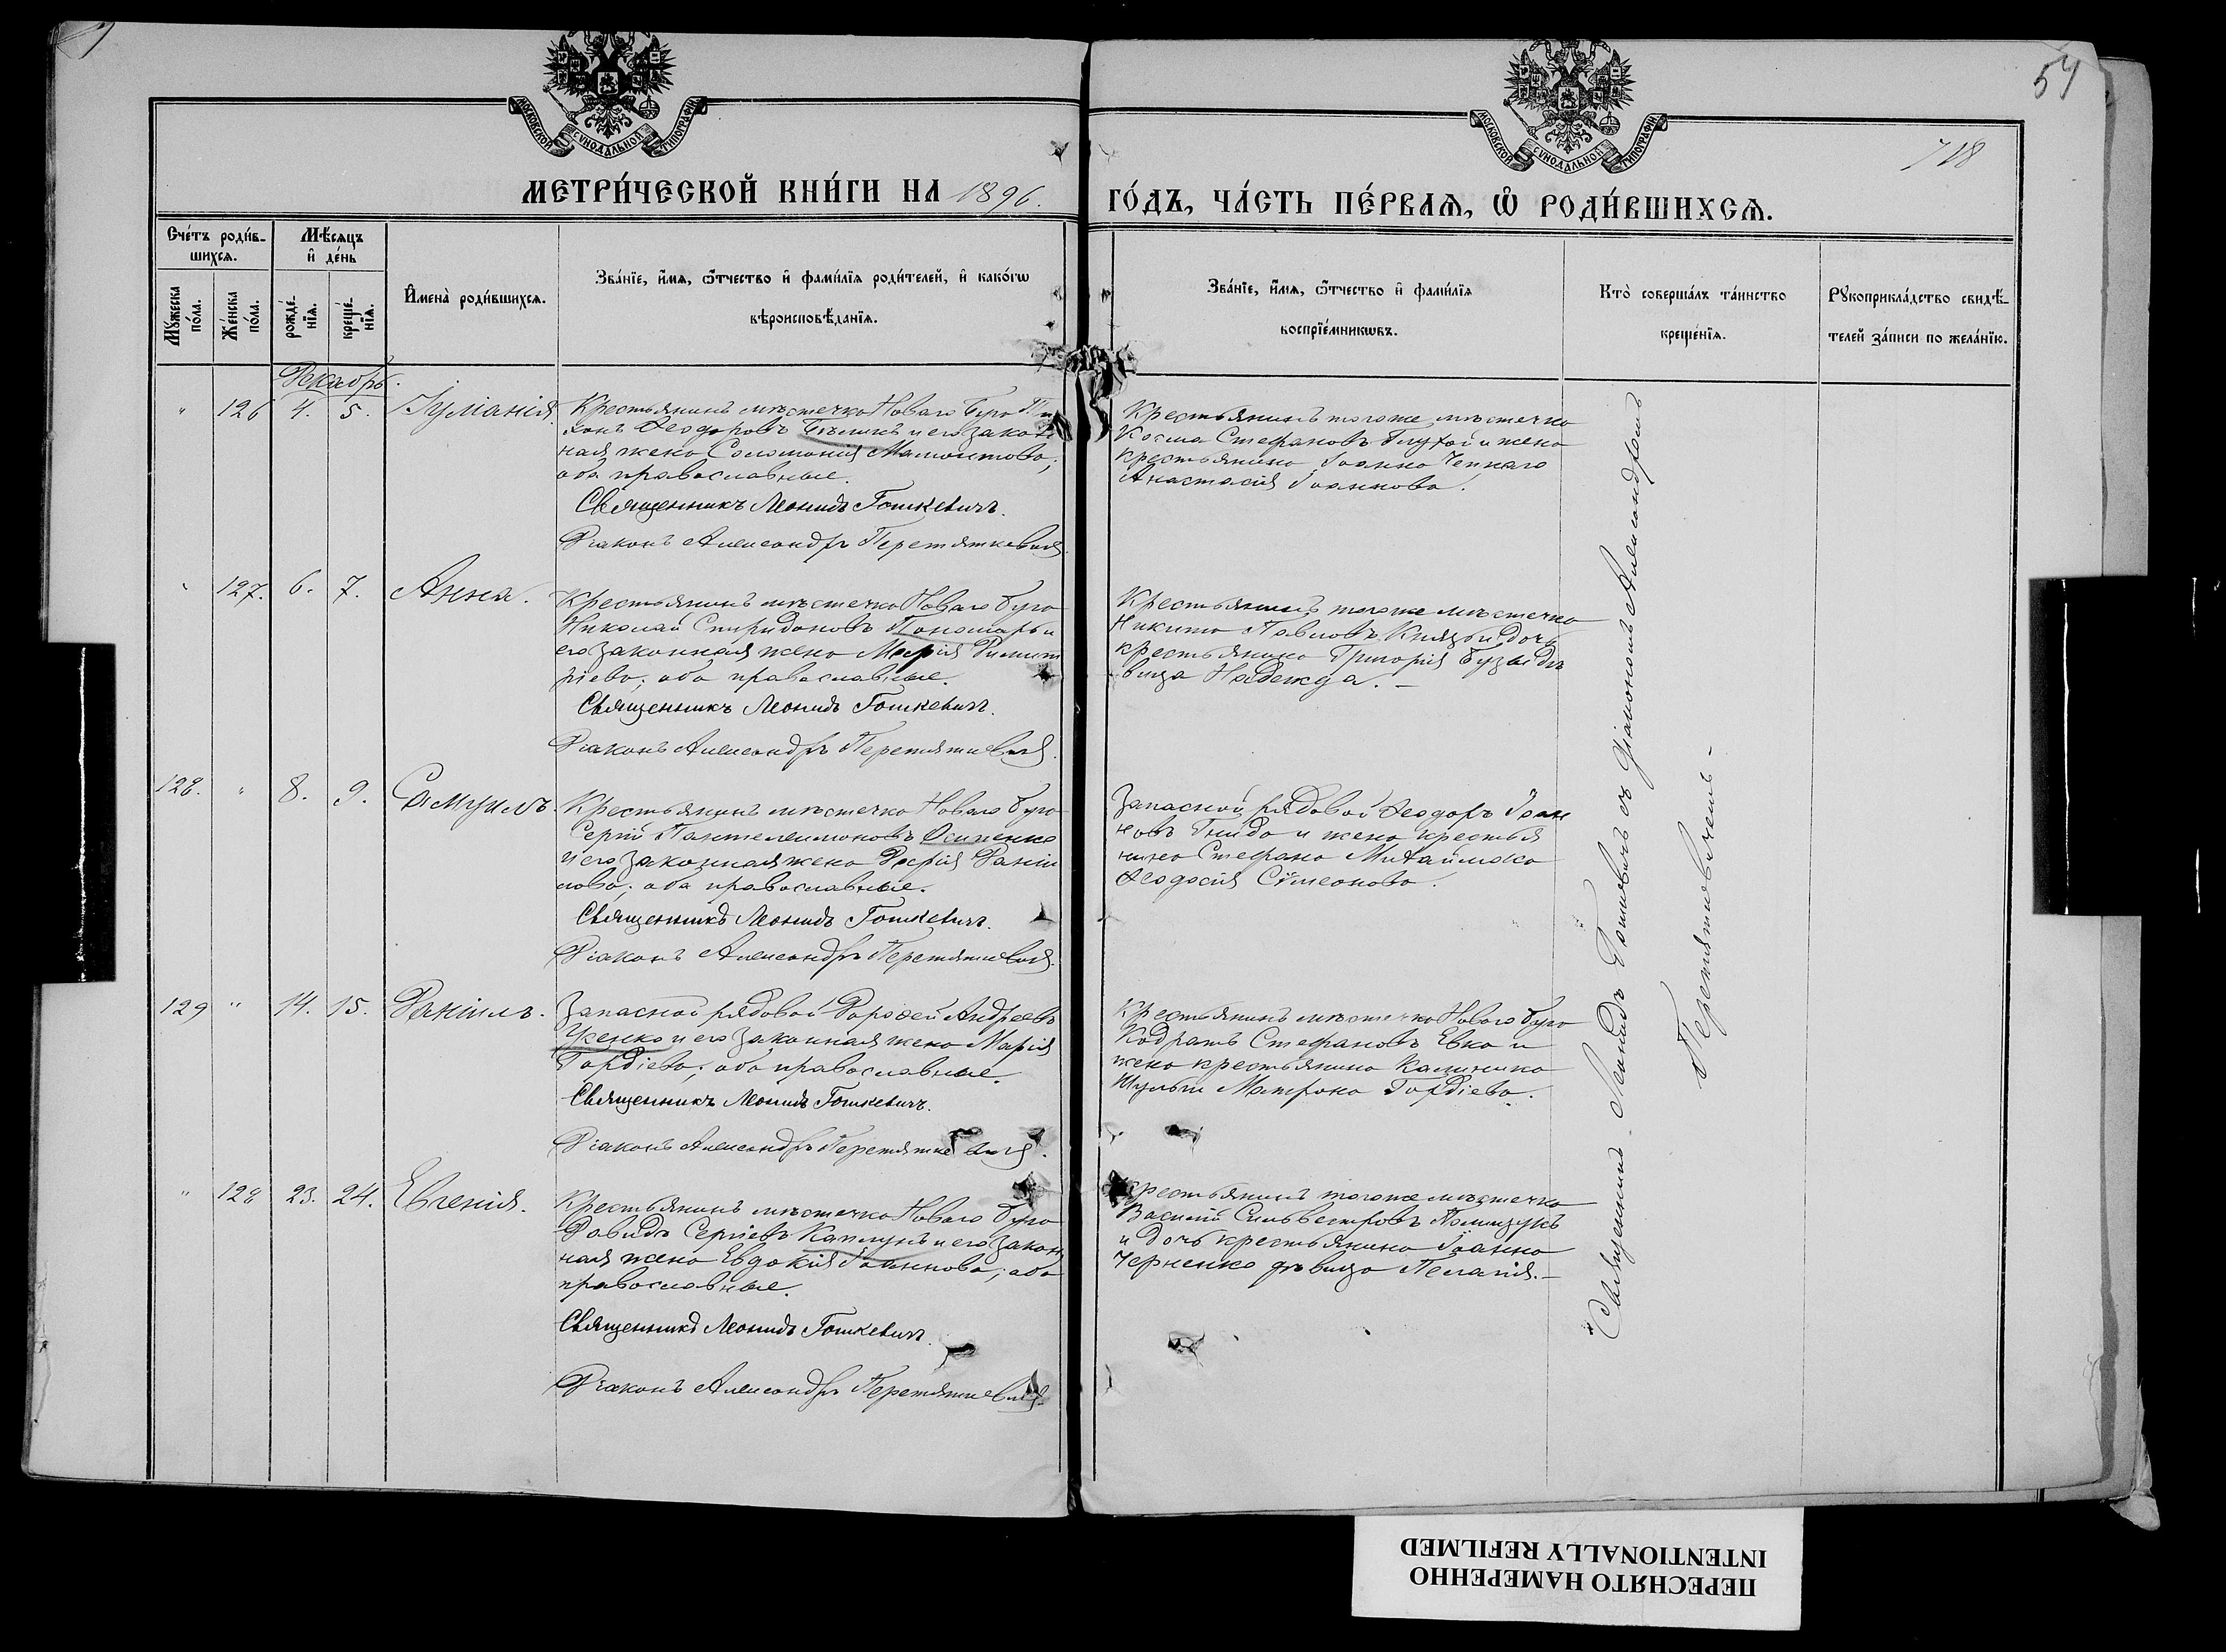 54
718
МОСКОВСКОЙ СѴНОДАЛЬНОЙ ТИПОГРАФІИ
МОСКОВСКОЙ СѴНОДАЛЬНОЙ ТИПОГРАФІИ
МЕТРИ́ЧЕСКОЙ КНИ́ГИ НА 1896.
ГО́ДЪ, ЧА́СТЬ ПЕ́РВАѦ, Ѿ РОДИ́ВШИХСѦ.
Сче́тъ роди́в-
шихсѧ.
Мꙋ́жеска
по́ла.
Же́нска
по́ла.
Мѣ́сѧцъ
и҆ де́нь
рожде́-
нїѧ.
креще́-
нїѧ.
И҆мена̀ роди́вшихсѧ.
Зва́нїе, и҆́мѧ, ѻ҆́тчество и҆ фами́лїѧ роди́телей, и҆ како́гѡ
вѣроисповѣ́данїѧ.
Зва́нїе, и҆́мѧ, ѻ҆́тчество и҆ фами́лїѧ
воспрїе́мникѡвъ.
Кто̀ соверша́лъ та́инство
креще́нїѧ.
Рꙋкоприкла́дство свидѣ́-
телей за́писи по жела́нїю.
Декабрь.
" 126 4. 5. Іуліанія.
Крестьянинъ мѣстечка Новаго Буга Ти
хонъ Ѳеодоровъ и его закон
ная жена Соломонія Мамонтова;
оба православные.
Священникъ Леонидъ Гошкевичъ.
Діаконъ Александръ Перетятковичъ.
Крестьянинъ тогоже мѣстечка
Косма Стефановъ Глухой и жена
крестьянина Іоанна
Анастасія Іоаннова.
" 127. 6. 7. Анна.
Крестьянинъ мѣстечка Новаго Буга
Николай Спиридоновъ Пономарь и
его законная жена Марія Димит
ріева; оба православные.
Священникъ Леонидъ Гошкевичъ.
Діаконъ Александръ Перетятковичъ.
Крестьянинъ тогоже мѣстечка
Никита Павловъ Князь и дочь
крестьянина Григорія дѣ
вица Надежда.
128. " 8. 9. Самуилъ.
Крестьянинъ мѣстечка Новаго Буга
Сергій Пантелеимоновъ Осипенко
и его законная жена Дарія Дани
лова; оба православные.
Священникъ Леонидъ Гошкевичъ.
Діаконъ Александръ Перетятковичъ.
Запасной рядовой Ѳеодоръ Іоан
новъ Гнида и жена крестья
нина Стефана Михайлюка
Ѳеодосія Сѵмеонова.
129 " 14. 15. Даніилъ.
Запасной рядовой Дороѳей Андреевъ
Усенко и его законная жена Марія
Гордіева; оба православные.
Священникъ Леонидъ Гошкевичъ.
Діаконъ Александръ Перетятковичъ.
Крестьянинъ мѣстечка Новаго Буга
Кодратъ Стефановъ Евка и
жена крестьянина Калиника
Шульги Матрона Гордіева.
" 128 23. 24. Евгенія.
Крестьянинъ мѣстечка Новаго Буга
Давидъ Сергіевъ Каплунъ и его закон
ная жена Евдокія Іоаннова; оба
православные.
Священникъ Леонидъ Гошкевичъ.
Діаконъ Александръ Перетятковичъ.
Крестьянинъ тогоже мѣстечка
Василій Сильвестровъ
и дочь крестьянина Іоанна
Черненко дѣвица Пелагія.
Священникъ Леонидъ Гошкевичъ съ діакономъ Александромъ
Перетятковичемъ
ПЕРЕСНЯТО НАМЕРЕННО
INTENTIONALLY REFILMED